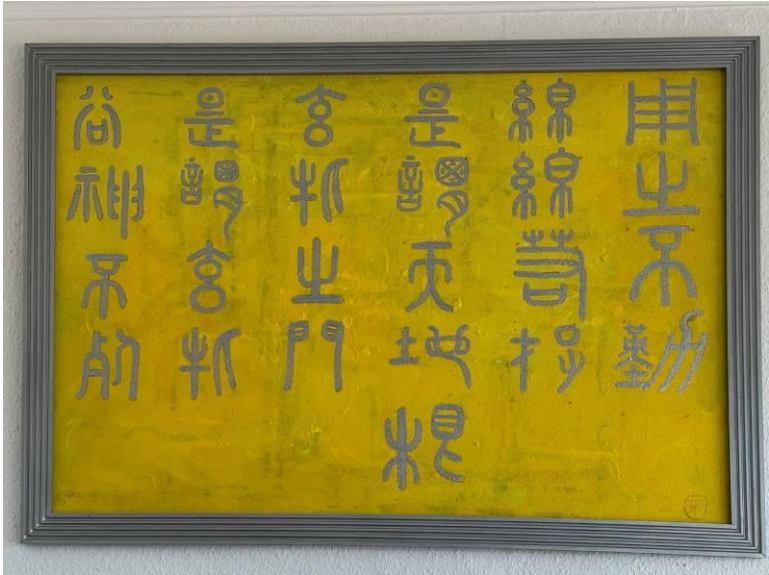 谷神不死
是謂玄牝
玄牝之門
是謂天地根
綿綿若存
用之不勤